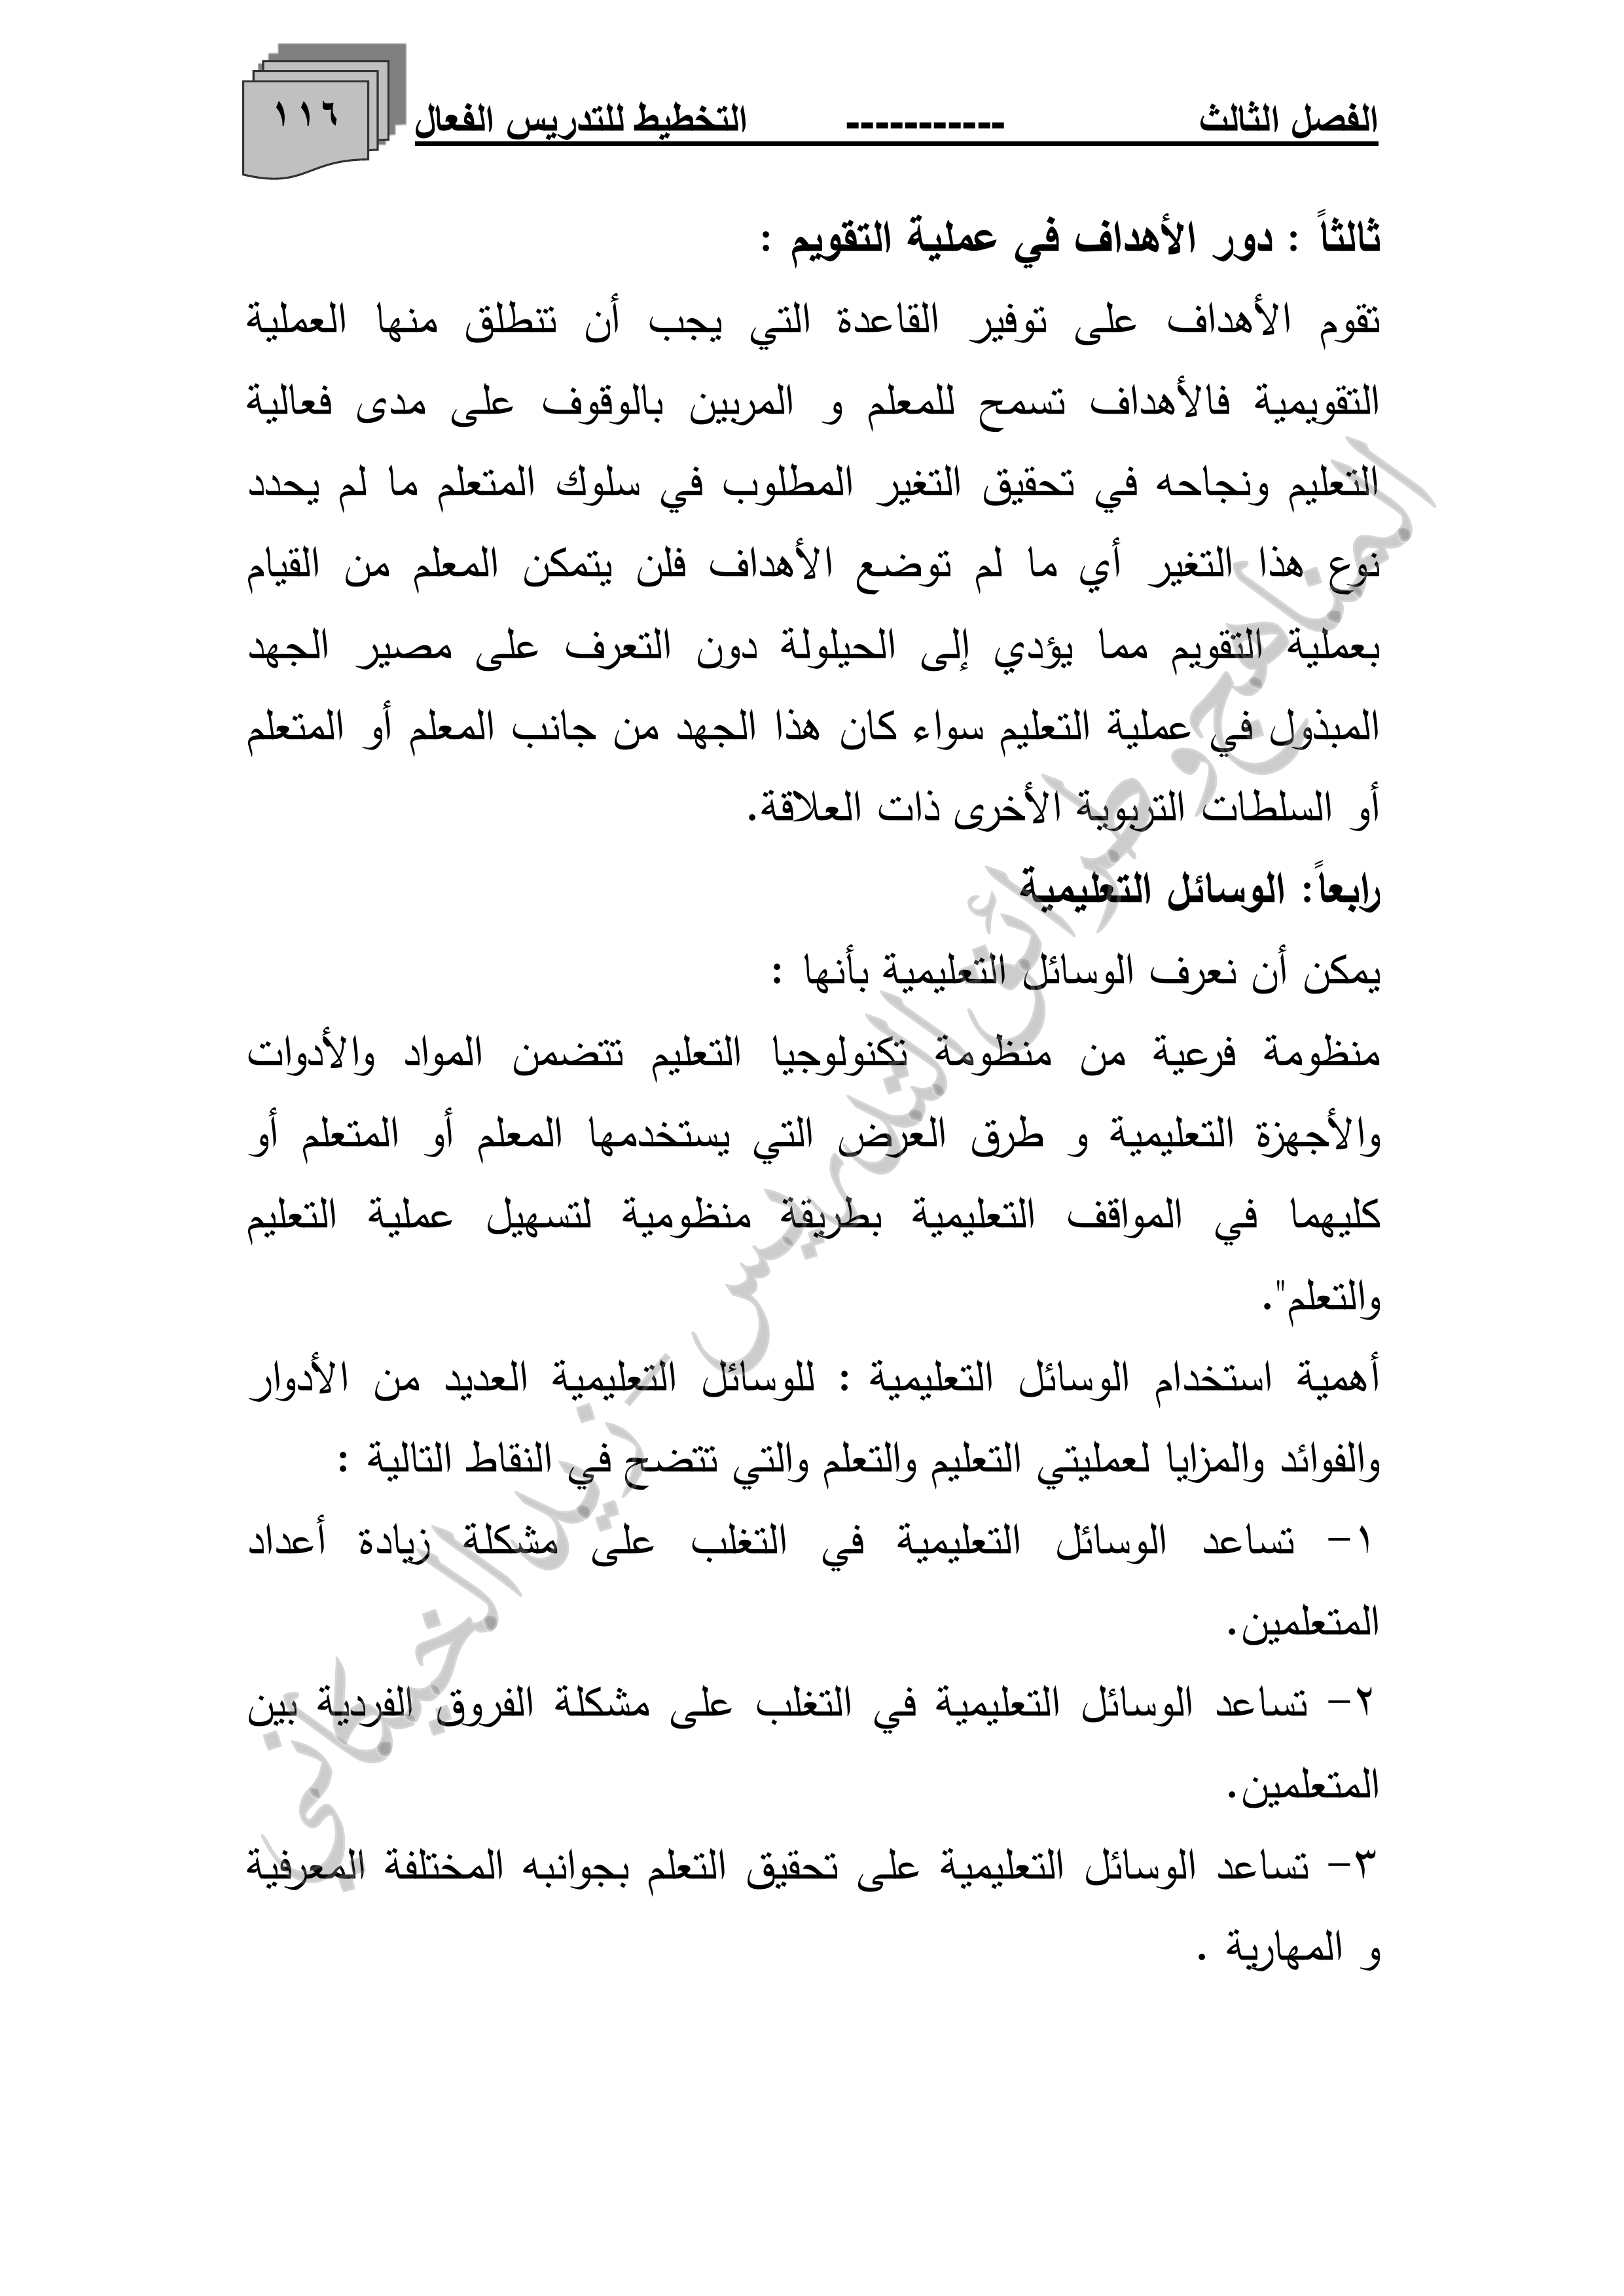 الفصل الثالث ----------- التخطيط للتدريس الفعال ١١٦
ثالثاً : دور الأهداف في عملية التقويم :
تقوم الأهداف على توفير القاعدة التي يجب أن تنطلق منها العملية
التقويمية فالأهداف تسمح للمعلم و المربين بالوقوف على مدى فعالية
التعليم ونجاحه في تحقيق التغير المطلوب في سلوك المتعلم ما لم يحدد
نوع هذا التغير أي ما لم توضع الأهداف فلن يتمكن المعلم من القيام
بعملية التقويم مما يؤدي إلى الحيلولة دون التعرف على مصير الجهد
المبذول في عملية التعليم سواء كان هذا الجهد من جانب المعلم أو المتعلم
أو السلطات التربوية الأخرى ذات العلاقة.
رابعاً: الوسائل التعليمية
يمكن أن نعرف الوسائل التعليمية بأنها :
منظومة فرعية من منظومة تكنولوجيا التعليم تتضمن المواد والأدوات
والأجهزة التعليمية و طرق العرض التي يستخدمها المعلم أو المتعلم أو
كليهما في المواقف التعليمية بطريقة منظومية لتسهيل عملية التعليم
والتعلم".
أهمية استخدام الوسائل التعليمية : للوسائل التعليمية العديد من الأدوار
والفوائد والمزايا لعمليتي التعليم والتعلم والتي تتضح في النقاط التالية :
١- تساعد الوسائل التعليمية في التغلب على مشكلة زيادة أعداد
المتعلمين.
٢- تساعد الوسائل التعليمية في التغلب على مشكلة الفروق الفردية بين
المتعلمين.
٣- تساعد الوسائل التعليمية على تحقيق التعلم بجوانبه المختلفة المعرفية
و المهارية .
المناهج وطرائق التدريس - زيد الخيكاني